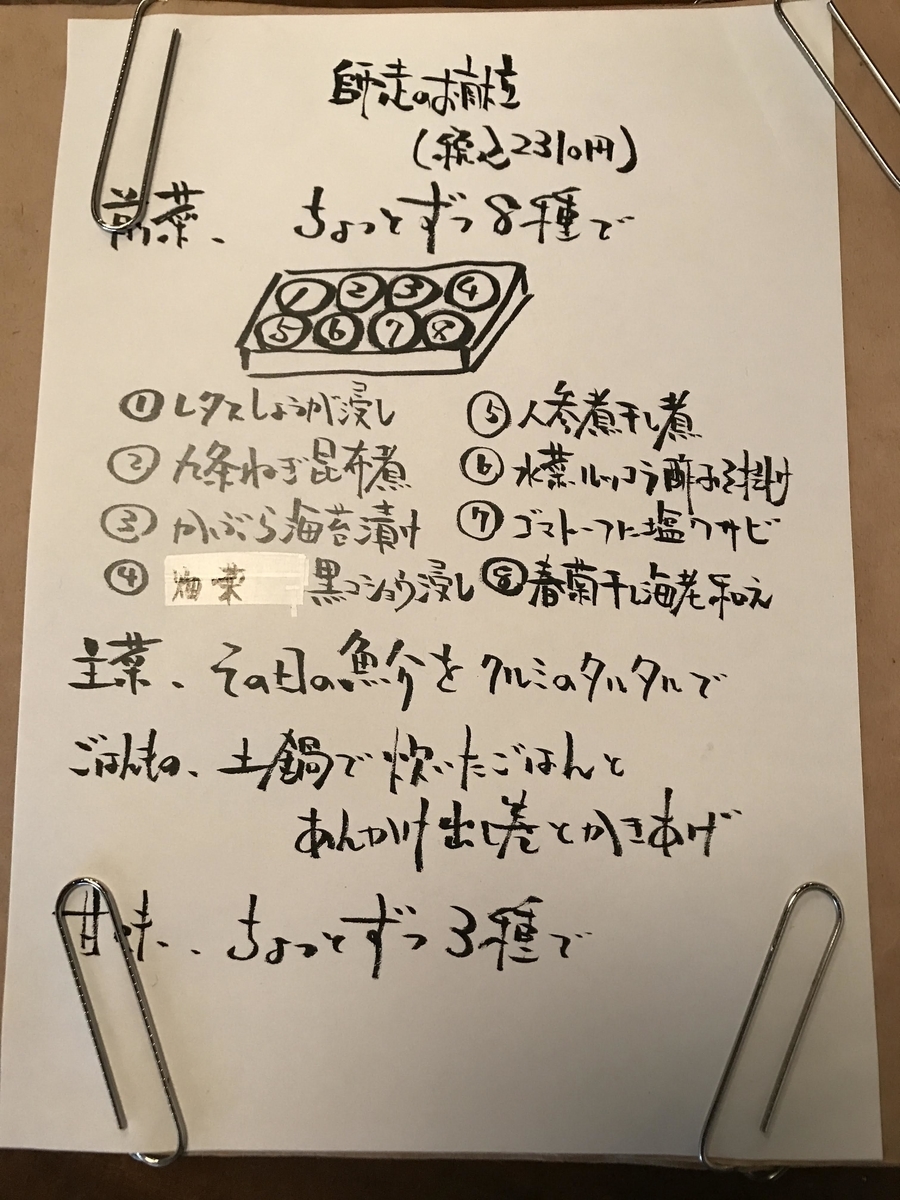 師走のお献立
(税込2310円)
前菜、 ちょっとずつ8種で
① ② ③ ④
⑤ ⑥ ⑦ ⑧
① レタスしょうが浸し
② 九条ねぎ昆布煮
③ かぶら海苔漬け
④ 畑菜 黒コショウ浸し
⑤ 人参煮干し煮
⑥ 水菜ルッコラ酢みそ掛け
⑦ ゴマトーフに塩ワサビ
⑧ 春菊干し海老和え
主菜、その日の魚介をクルミのタルタルで
ごはんもの、土鍋で炊いたごはんと
あんかけ出し巻とかきあげ
甘味、ちょっとずつ3種で